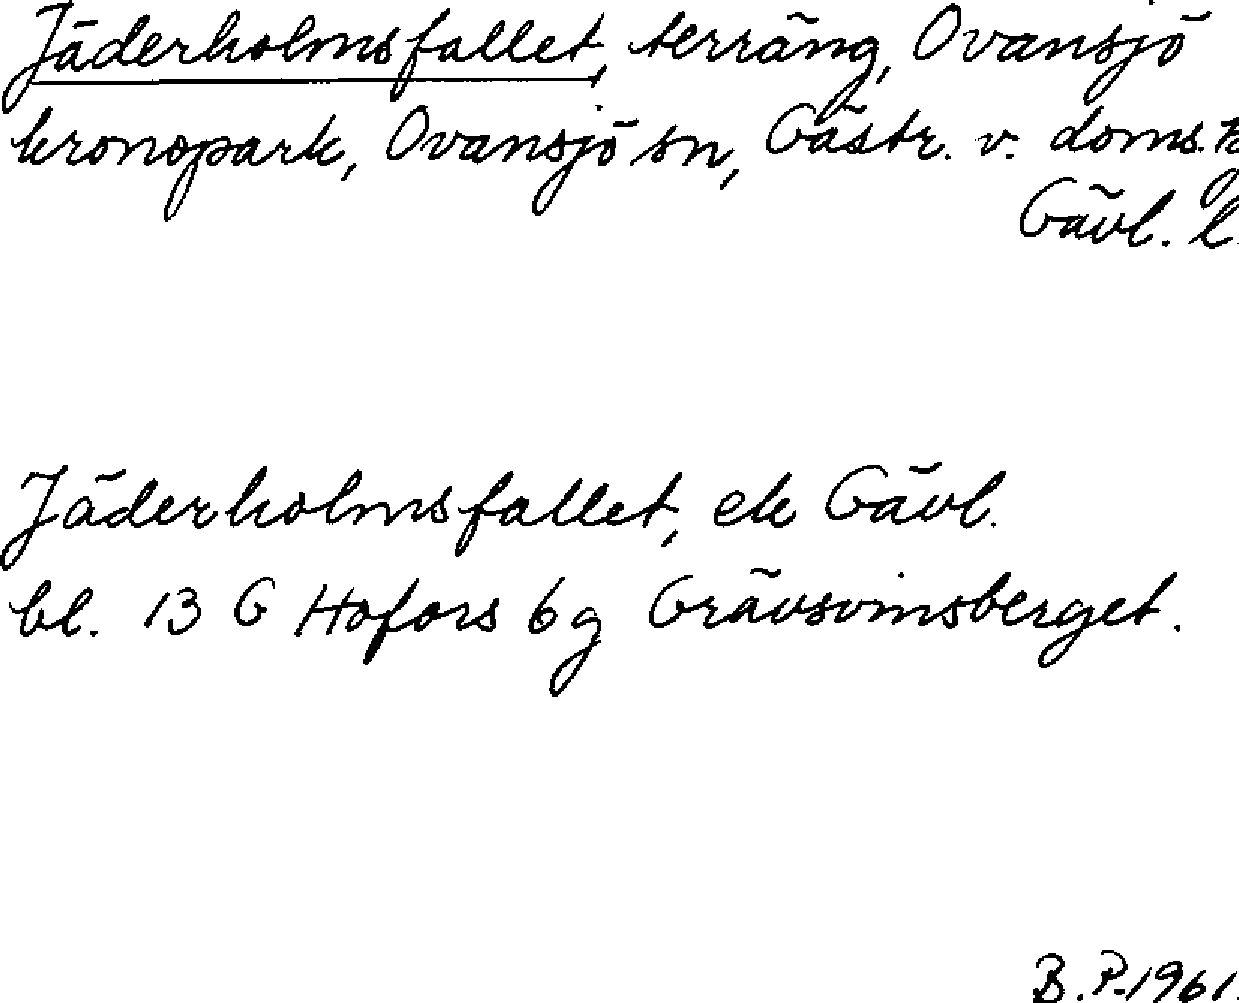 Jäderholmsfallet, terräng, Ovansjö
kronopark, Ovansjö sn, Gästr. v. doms.
Gävl. l.
Jäderholmsfallet, ek Gävl.
bl. 13 G Hofors 6g Grävsvinsberget.
B.P. 1961.